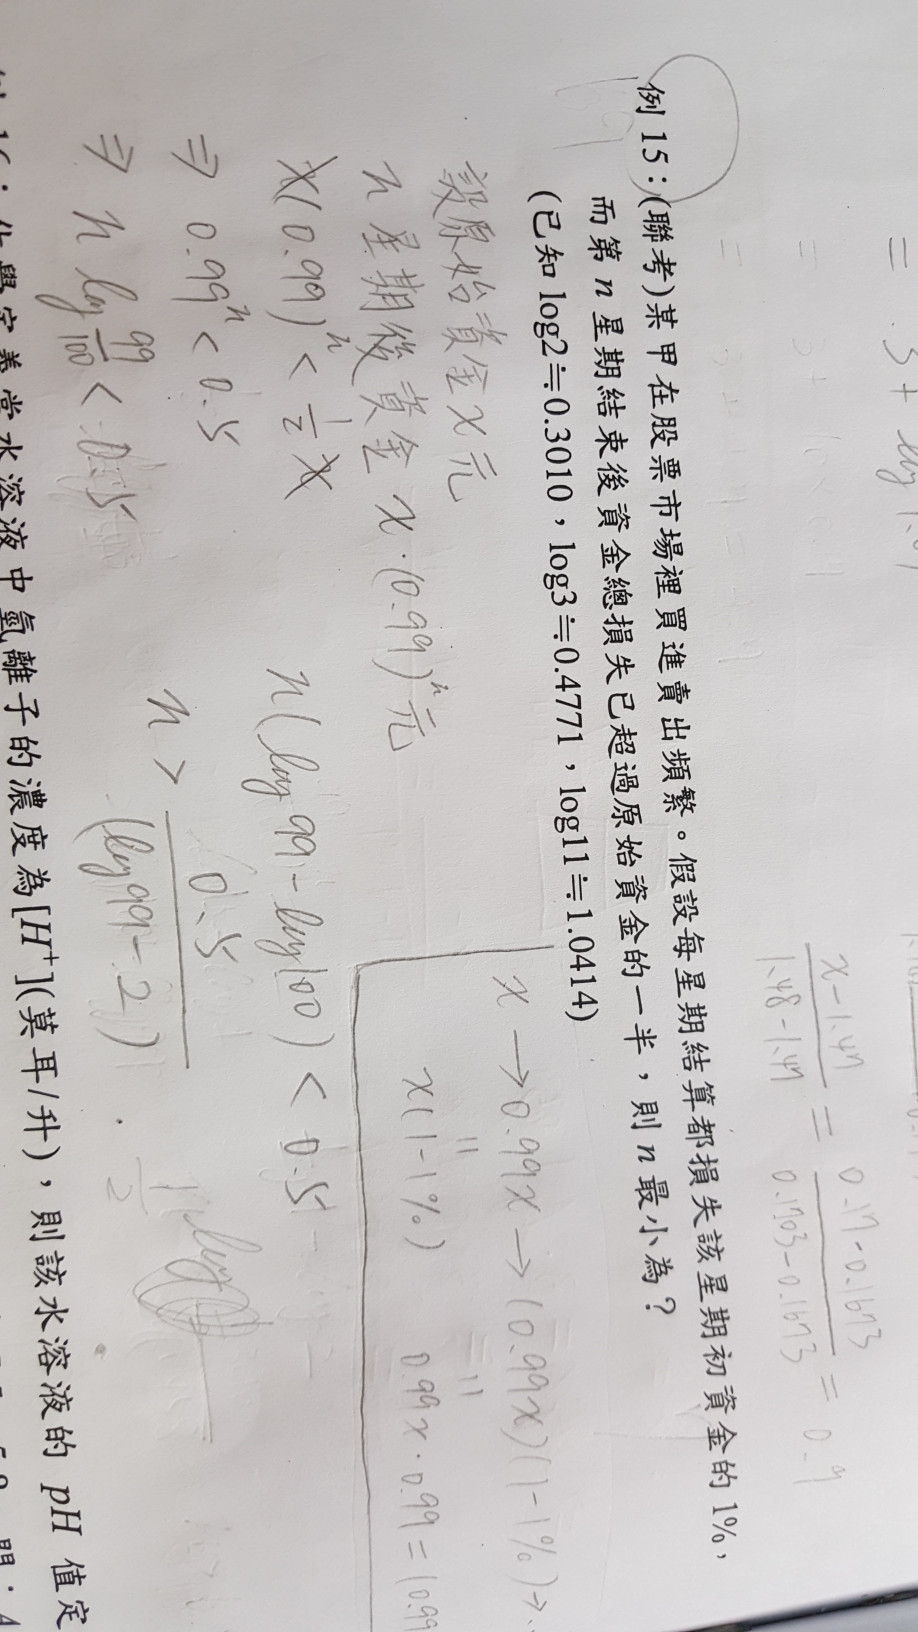 = 5 + log 1.07
x-1.47 / 1.48-1.47 = 0.17-0.1673 / 0.1703-0.1673 = 0.9
例 15:(聯考)某甲在股票市場裡買進賣出頻繁。假設每星期結算都損失該星期初資金的1%,
而第 n 星期結束後資金總損失已超過原始資金的一半,則 n 最小為?
(已知 log2≒0.3010,log3≒0.4771,log11≒1.0414)
設原始資金 x 元
n 星期後資金 x·(0.99)ⁿ元
x(0.99)ⁿ < 1/2 x
⇒ 0.99ⁿ < 0.5
⇒ n log 99/100 < 0.5
x → 0.99x → (0.99x)(1-1%) → ..
x(1-1%)
0.99x·0.99 = (0.99
n(log99-log100) < 0.5
n > 0.5 / (log99-2)
化學定義當水溶液中氫離子的濃度為[H⁺](莫耳/升),則該水溶液的 pH 值定